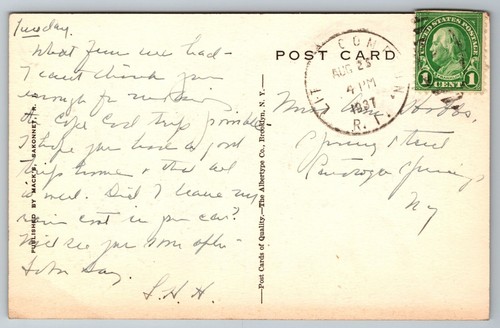 Tuesday.
What fun we had -
I can't thank you
enough for making
the Cape Cod trip possible
I hope you have a good
trip home & that all
is well. Did I leave my
rain coat in your car?
Will see you soon after
Labor Day.
S.H.H.
PUBLISHED BY MACK'S, SAKONNET, R.
Post Cards of Quality.—The Albertype Co., Brooklyn, N. Y.
POST CARD
LITTLE COMPTON
AUG 23
4 PM
1937
R. I.
UNITED STATES POSTAGE
1 1
CENT
Hobbs,
Spring Street
Saratoga Springs
NY